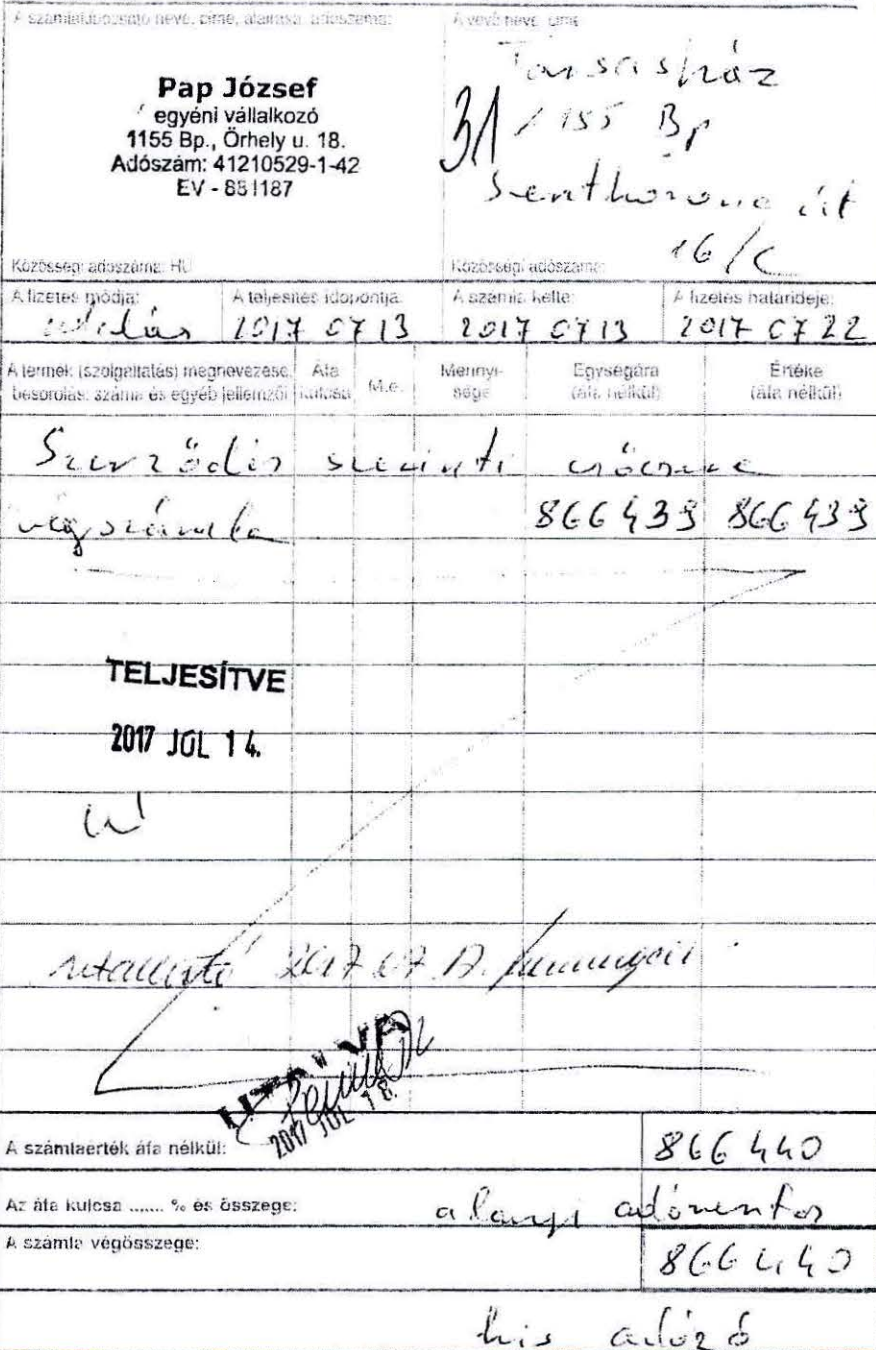 A számlakibocsátó neve, címe, aláírása, adószáma:
Pap József
egyéni vállalkozó
1155 Bp., Őrhely u. 18.
Adószám: 41210529-1-42
EV - 881187
Közösségi adószáma: HU
A vevő neve, címe
Társasház
31
1155 Bp
Szentkorona út
16/C
Közösségi adószáma:
A fizetés módja:
utalás
A teljesítés időpontja:
2017 07 13
A számla kelte:
2017 07 13
A fizetés határideje:
2017 07 22
A termék (szolgáltatás) megnevezése, besorolás: száma és egyéb jellemzői
Áfa kulcsa
M.e.
Mennyi-
sége
Egységára
(áfa nélkül)
Értéke
(áfa nélkül)
Szerződés szerinti csőcsere
végszámla 866 439 866 439
TELJESÍTVE
2017 JÚL 14.
utalható 2017 07
UTALVA
2017 JÚL 18.
A számlaérték áfa nélkül: 866 440
Az áfa kulcsa ....... % és összege: alanyi adómentes
A számla végösszege: 866 440
kis adózó